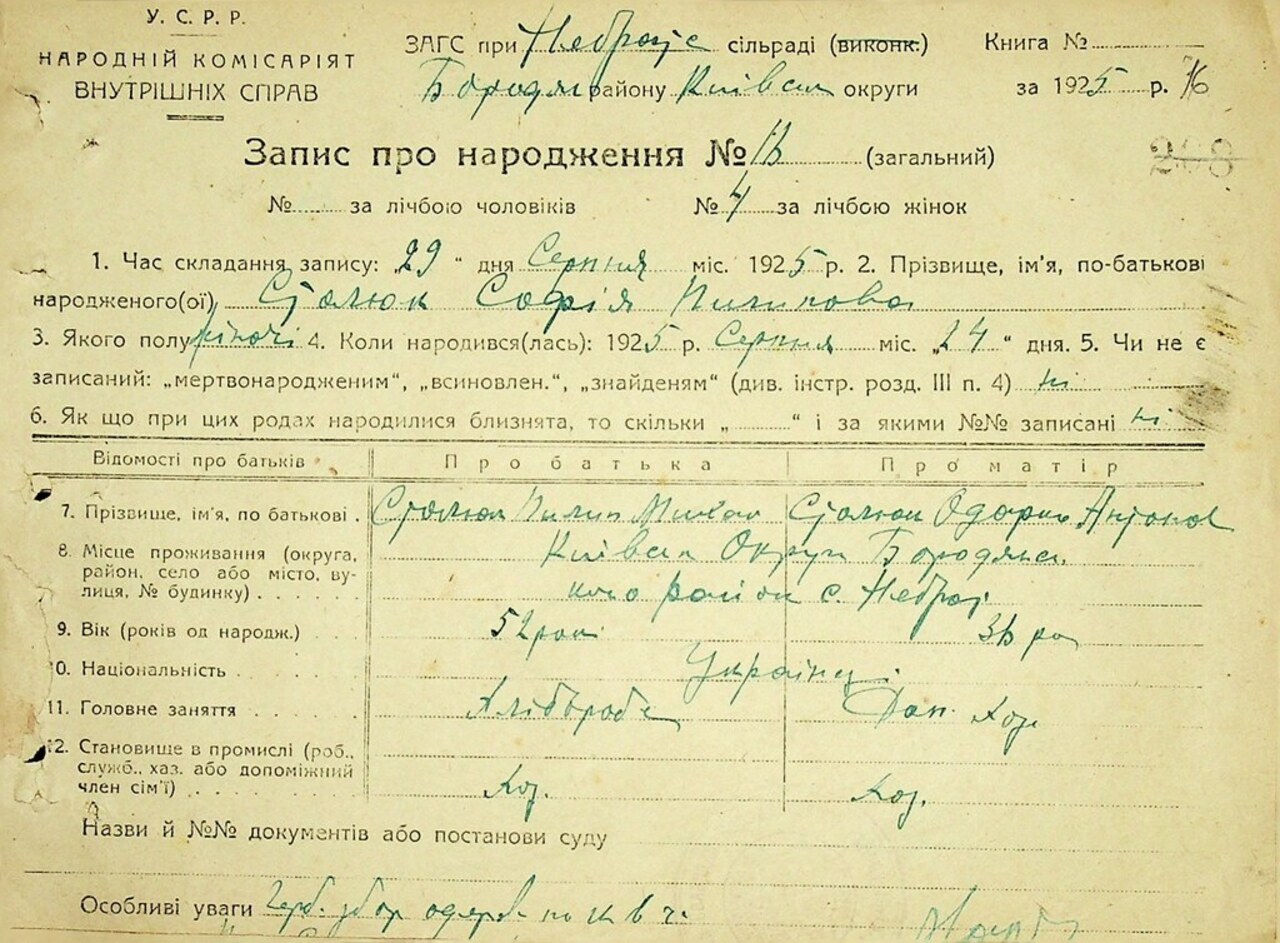 У. С. Р. Р.
НАРОДНІЙ КОМІСАРІЯТ
ВНУТРІШНІХ СПРАВ
ЗАГС при Небраге сільраді (виконк.) Книга №
Бородян району Київск округи за 1925 р. 16
Запис про народження № (загальний)
208
№ за лічбою чоловіків № 4 за лічбою жінок
1. Час складання запису: „29 “ дня Серпня міс. 1925 р. 2. Прізвище, ім'я, по-батькові
народженого(ої) Столюк Софія Пилипова
3. Якого полу жіночі 4. Коли народився(лась): 1925 р. Серпня міс. „24 “ дня. 5. Чи не є
записаний: „мертвонародженим“, „всиновлен.“, „знайденям“ (див. інстр. розд. III п. 4) ні
6. Як що при цих родах народилися близнята, то скільки „ “ і за якими №№ записані ні
Відомості про батьків Про батька Про матір
7. Прізвище, ім'я, по батькові . Столюк Пилип Столюк Одарка Антонов
8. Місце проживання (округа, Київск Округи Бородянс
район, село або місто, ву-
лиця, № будинку) . . . . . . кого район с. Небраг
9. Вік (років од народж.) . . . 52 рокі
10. Національність . . . . . . Українці
11. Головне заняття . . . . . Хлібороб Дом. Хоз.
12. Становище в промислі (роб.,
служб., хаз. або допоміжний
член сім'ї) . . . . . . . Хоз. Хоз.
Назви й №№ документів або постанови суду
Особливі уваги Герб. збор